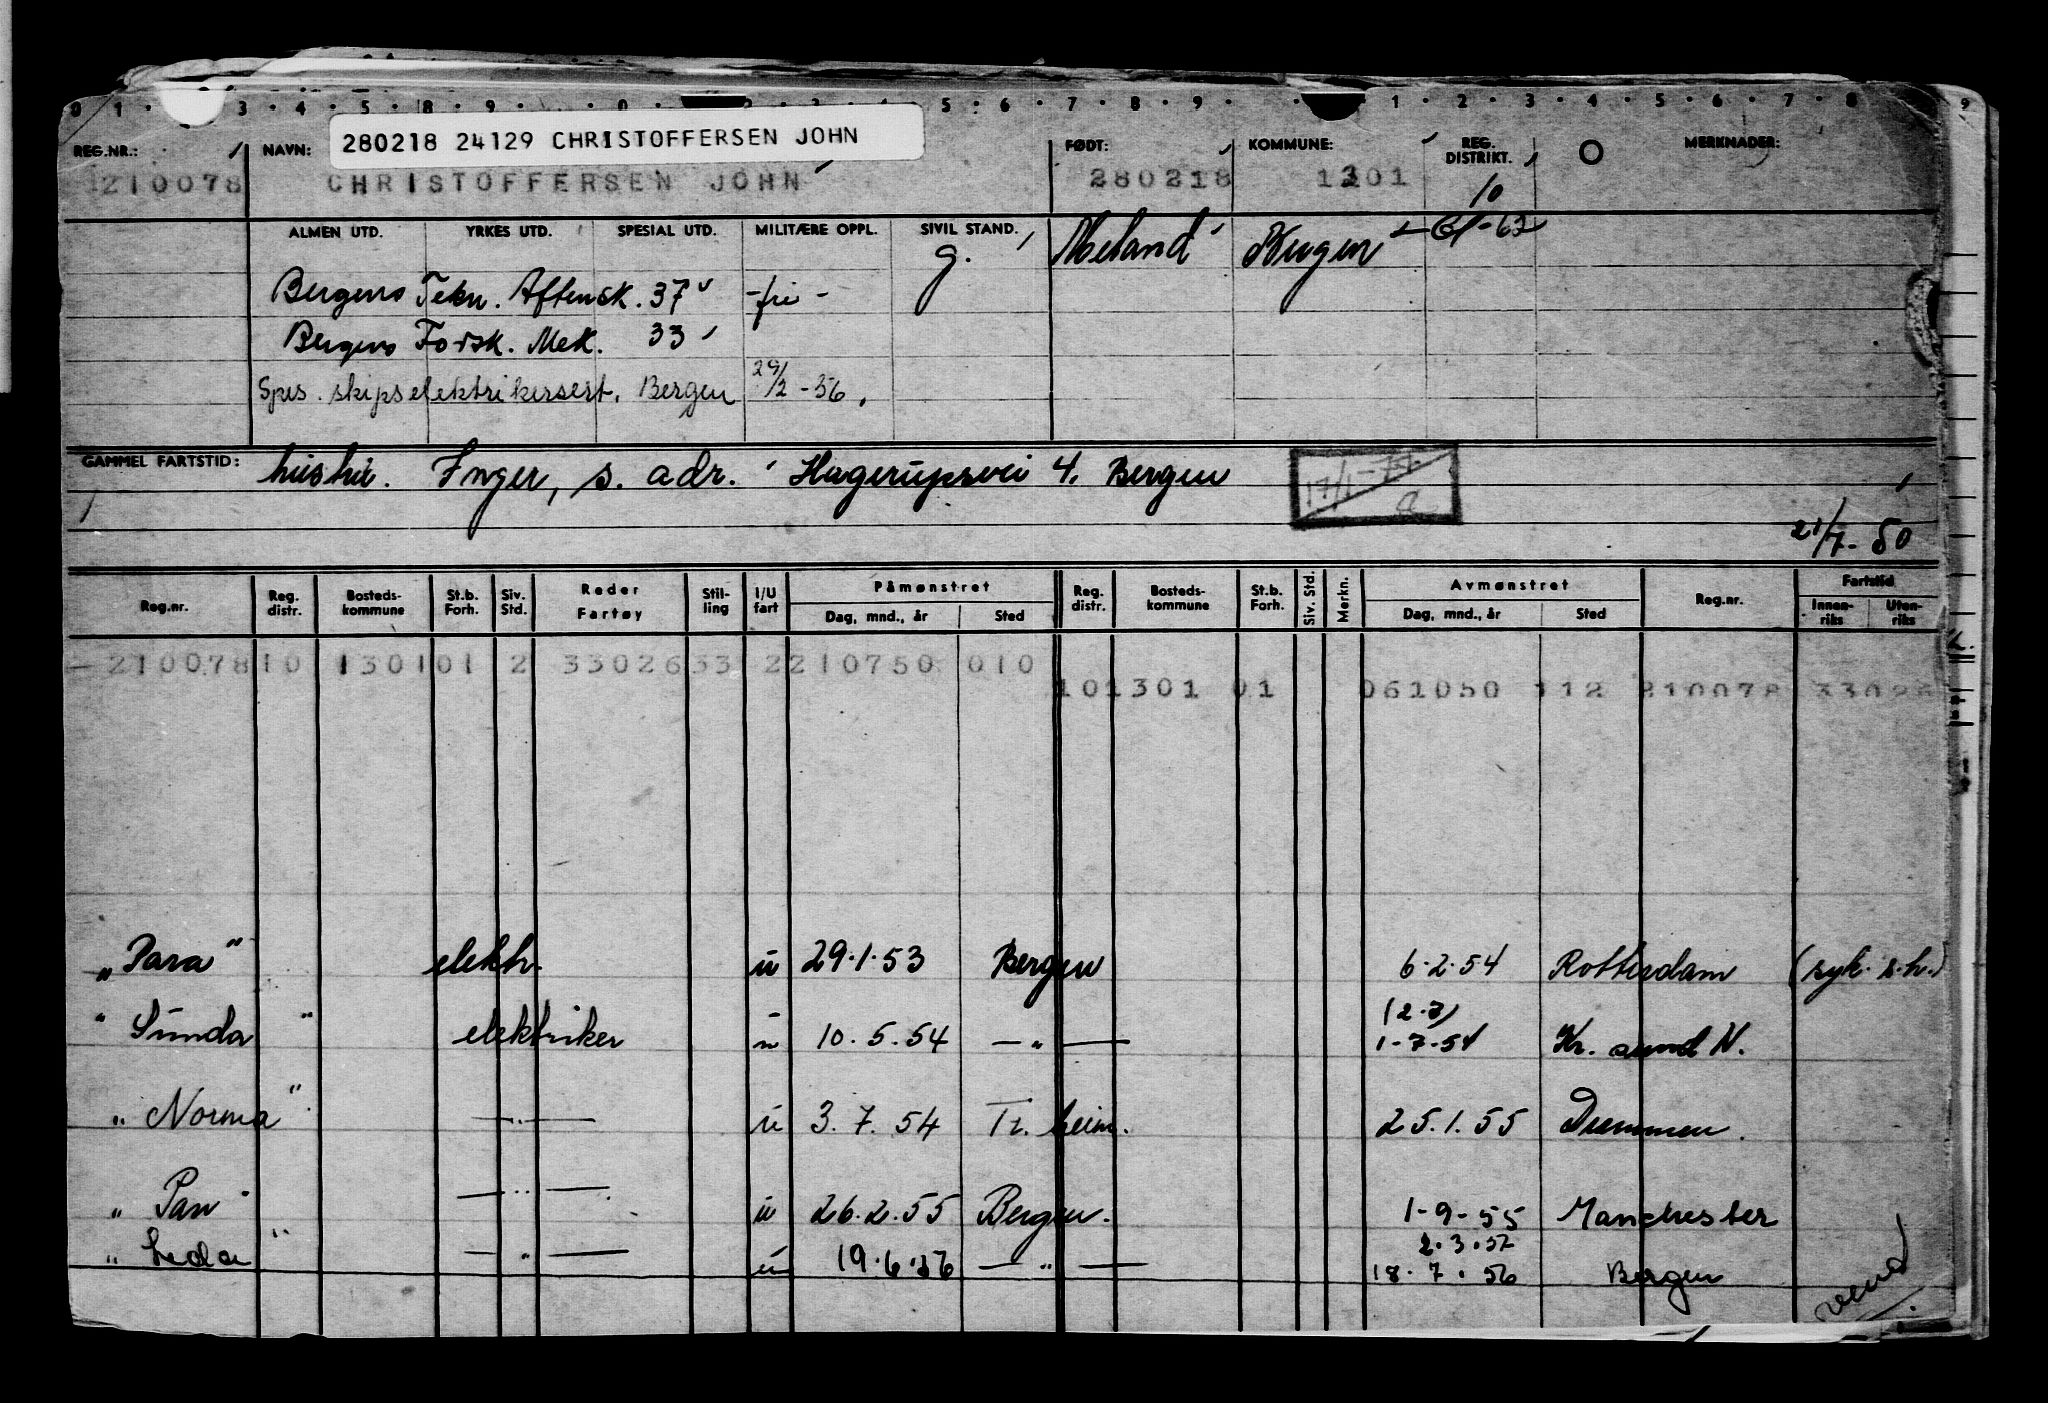 280218 24129 CHRISTOFFERSEN JOHN
REG.NR.: NAVN: FØDT: KOMMUNE: REG. DISTRIKT. MERKNADER:
210078 CHRISTOFFERSEN JOHN 280218 1301 10
ALMEN UTD. YRKES UTD. SPESIAL UTD. MILITÆRE OPPL. SIVIL STAND.
g. Meland
Bergens Tekn. Aftensk. 37 -fri-
Bergens Forsk. Mek. 33
Spes. skipselektrikersert. Bergen 29/2-56.
GAMMEL FARTSTID: hustru. Inger, s. adr. Hagerupsvei 4. Bergen
21/7-50
Reg.nr. Reg. distr. Bosteds-kommune St.b. Forh. Siv. Std. Reder Fartøy Stil-ling I/U fart Påmønstret Reg. distr. Bosteds-kommune St.b. Forh. Siv. Std. Merkn. Avmønstret Reg.nr. Fartstid
Dag, mnd., år Sted Dag, mnd., år Sted Innen-riks Uten-riks
21007810 130101 2 3302633 2210750 010
101301 01 061050 112 210078 33026
„Para" elektr. u 29.1.53 Bergen 6.2.54 Rotterdam (syk. s.h.)
"Sunda" elektriker u 10.5.54 —"— 1-7-54 Kr. sund N.
„Norma" —"— u 3.7.54 Tr.heim. 25.1.55 Drammen.
„Pan" —"— u 26.2.55 Bergen. 1-9-55 Manchester
2.3.57
„Leda" —"— u 19.6.56 —"— 18.7.56 Bergen
vend